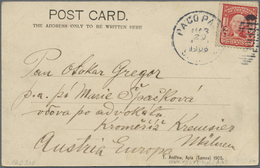 POST CARD.
THE ADDRESS ONLY TO BE WRITTEN HERE
PAGO PA
1908
Pan Otokar Gregor
p. a. pí Marie Špačková
vdova po advokátu
Kroměříž Kremsier
Austria Europa
T. Andrew, Apia (Samoa)